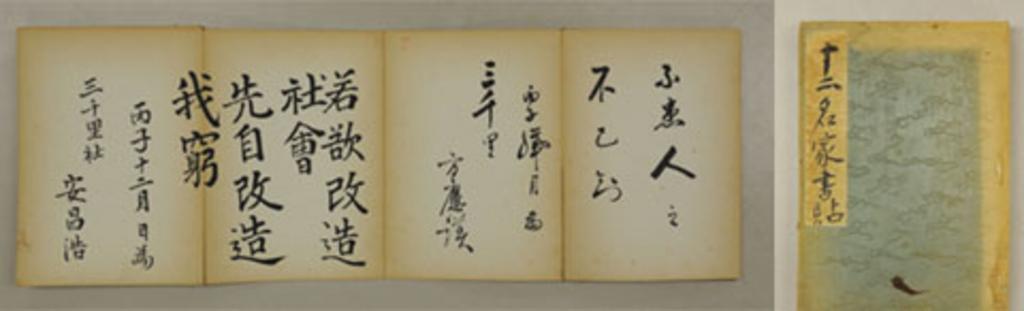 不患人之
不己知
丙子臘月為
三千里
方應謨
若欲改造
社會
先自改造
我窮
丙子十二月日為
三千里社
安昌浩
十二名家書帖